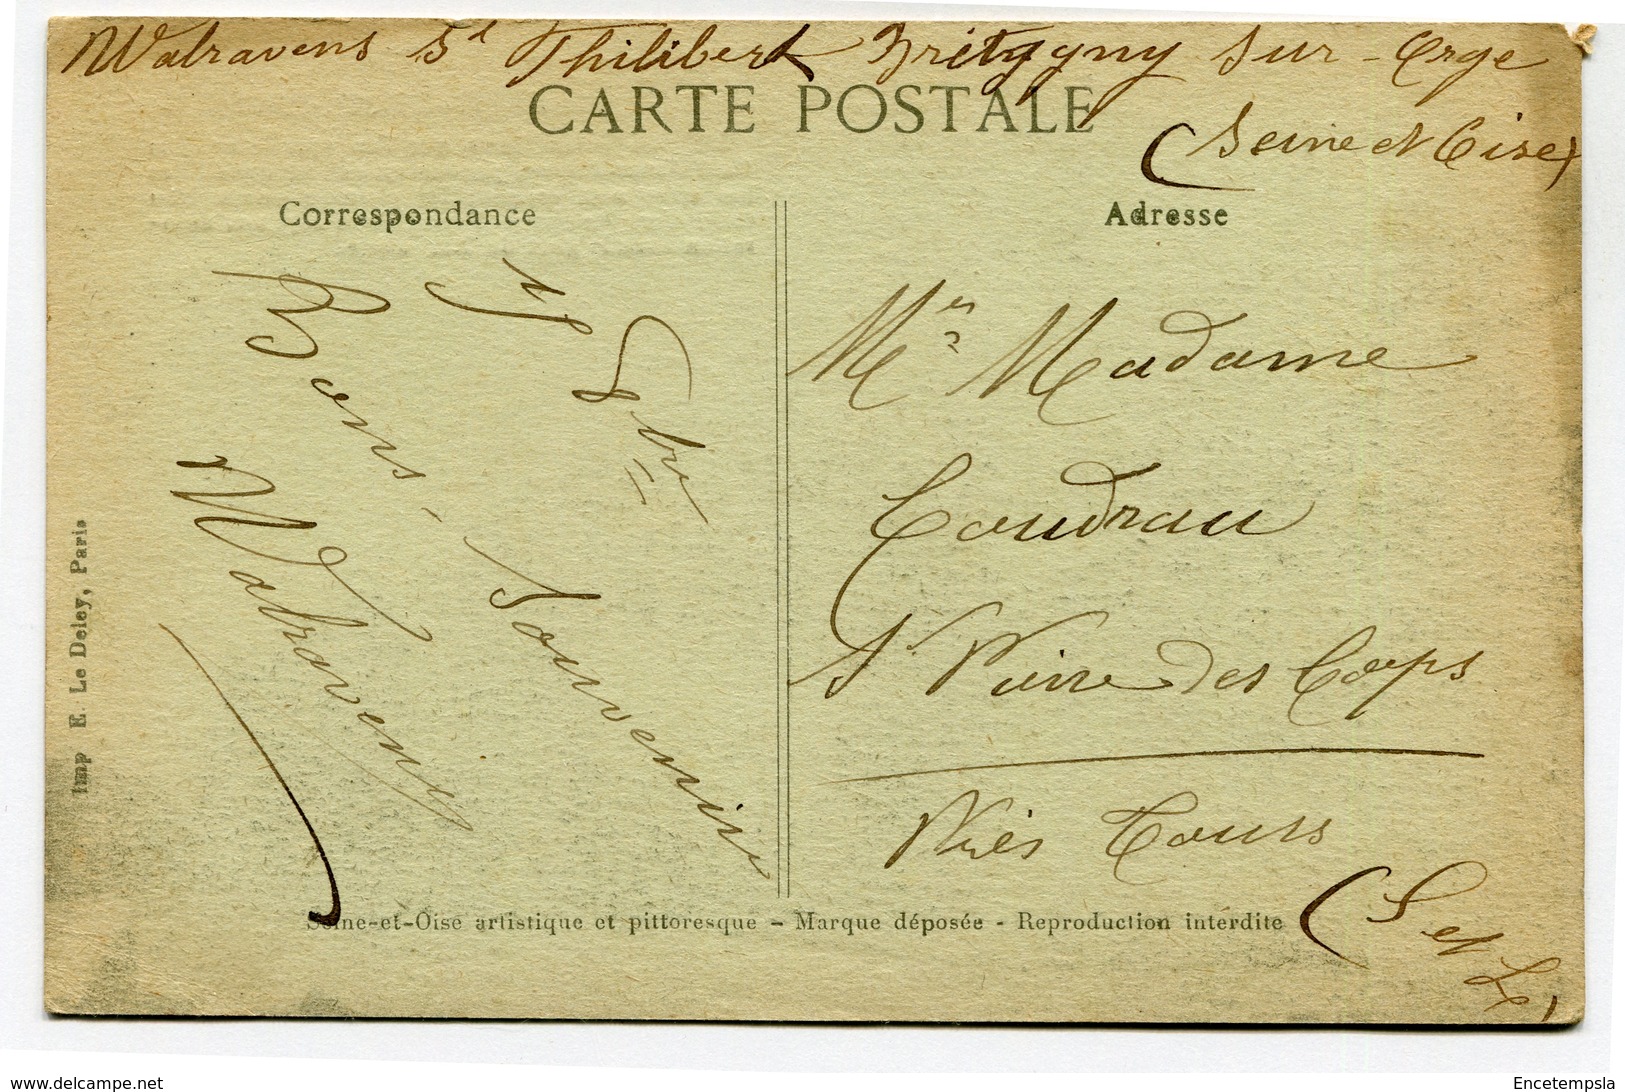 Walravens St Philibert Brétygny sur-Orge
CARTE POSTALE
(Seine et Oise)
Correspondance
Adresse
8bre
Bons Souvenirs
Walravens
Mr Madame
Coudrau
St Pierre des Corps
Près Tours
(I et L)
Imp E. Le Deley, Paris
Seine-et-Oise artistique et pittoresque – Marque déposée - Reproduction interdite
www.delcampe.net
Encetempsla